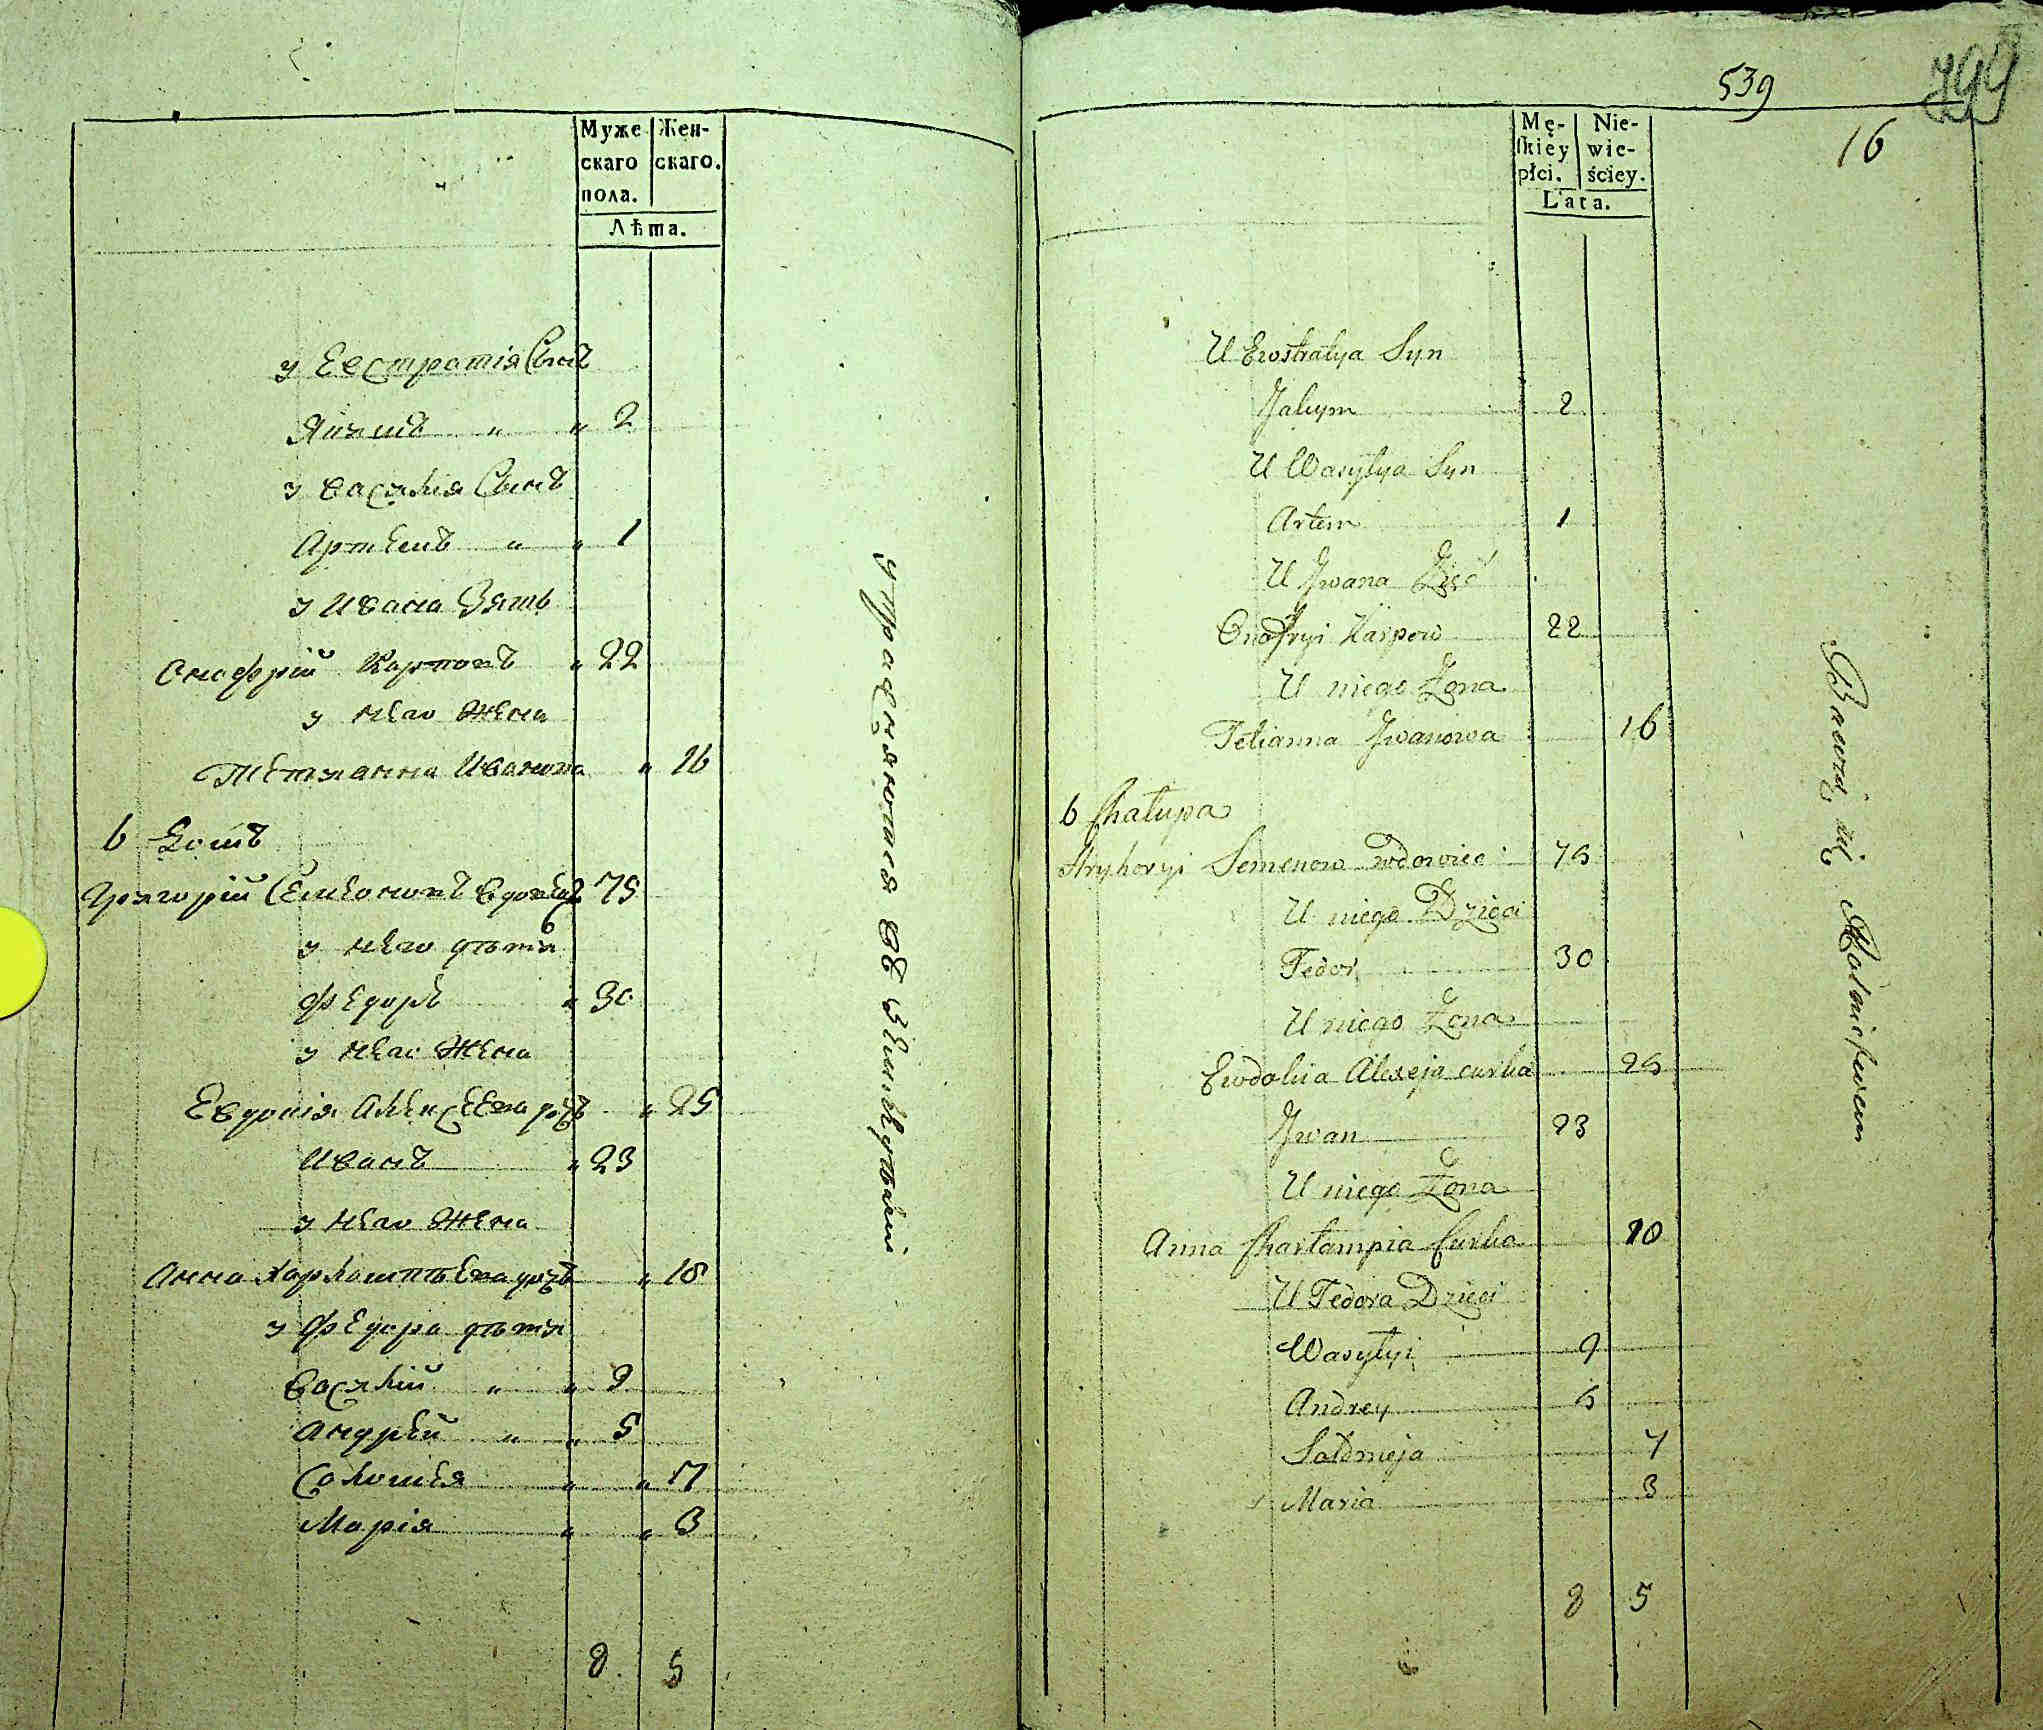 Муже Жен-
скаго скаго.
пола.
Лѣта.
у Евстратія Сынъ
Якимъ " " 2
у Василія Сынъ
Артемъ " " 1
у Ивана Зять
Онофрій Карповъ " 22
у него Жена
Тетянна Иванова " 16
6 Домъ
Григорій Семеновъ вдовецъ 75
у него дѣти
Федоръ " 30
у него Жена
Евдокія Алексеева дочь " 25
Иванъ " 23
у него Жена
Анна Харлампѣева дочь " 18
у Федора дѣти
Василій " " 9
Андрей " " 5
Соломея " " 7
Марія " " 3
8 5
упражняются въ земледѣліи
539
799
16
Mę- Nie-
ſkiey wie-
płci. ściey.
Lata.
U Ewstratya Syn
Jakym 2
U Wasylya Syn
Artem 1
U Jwana Zięć
Onofryi Karpow 22
U niego Żona
Tetianna Jwanowa 16
6 Chałupa
Hryhoryi Semenow wdowiec 75
U niego Dzieci
Fedor 30
U niego Żona
Ewdokia Alexeja curka 25
Jwan 23
U niego Żona
Anna Charłampia Curka 18
U Fedora Dzieci
Wasylyi 9
Andrey 5
Sołomeja 7
Maria 3
8 5
Bawią się Rolnictwem